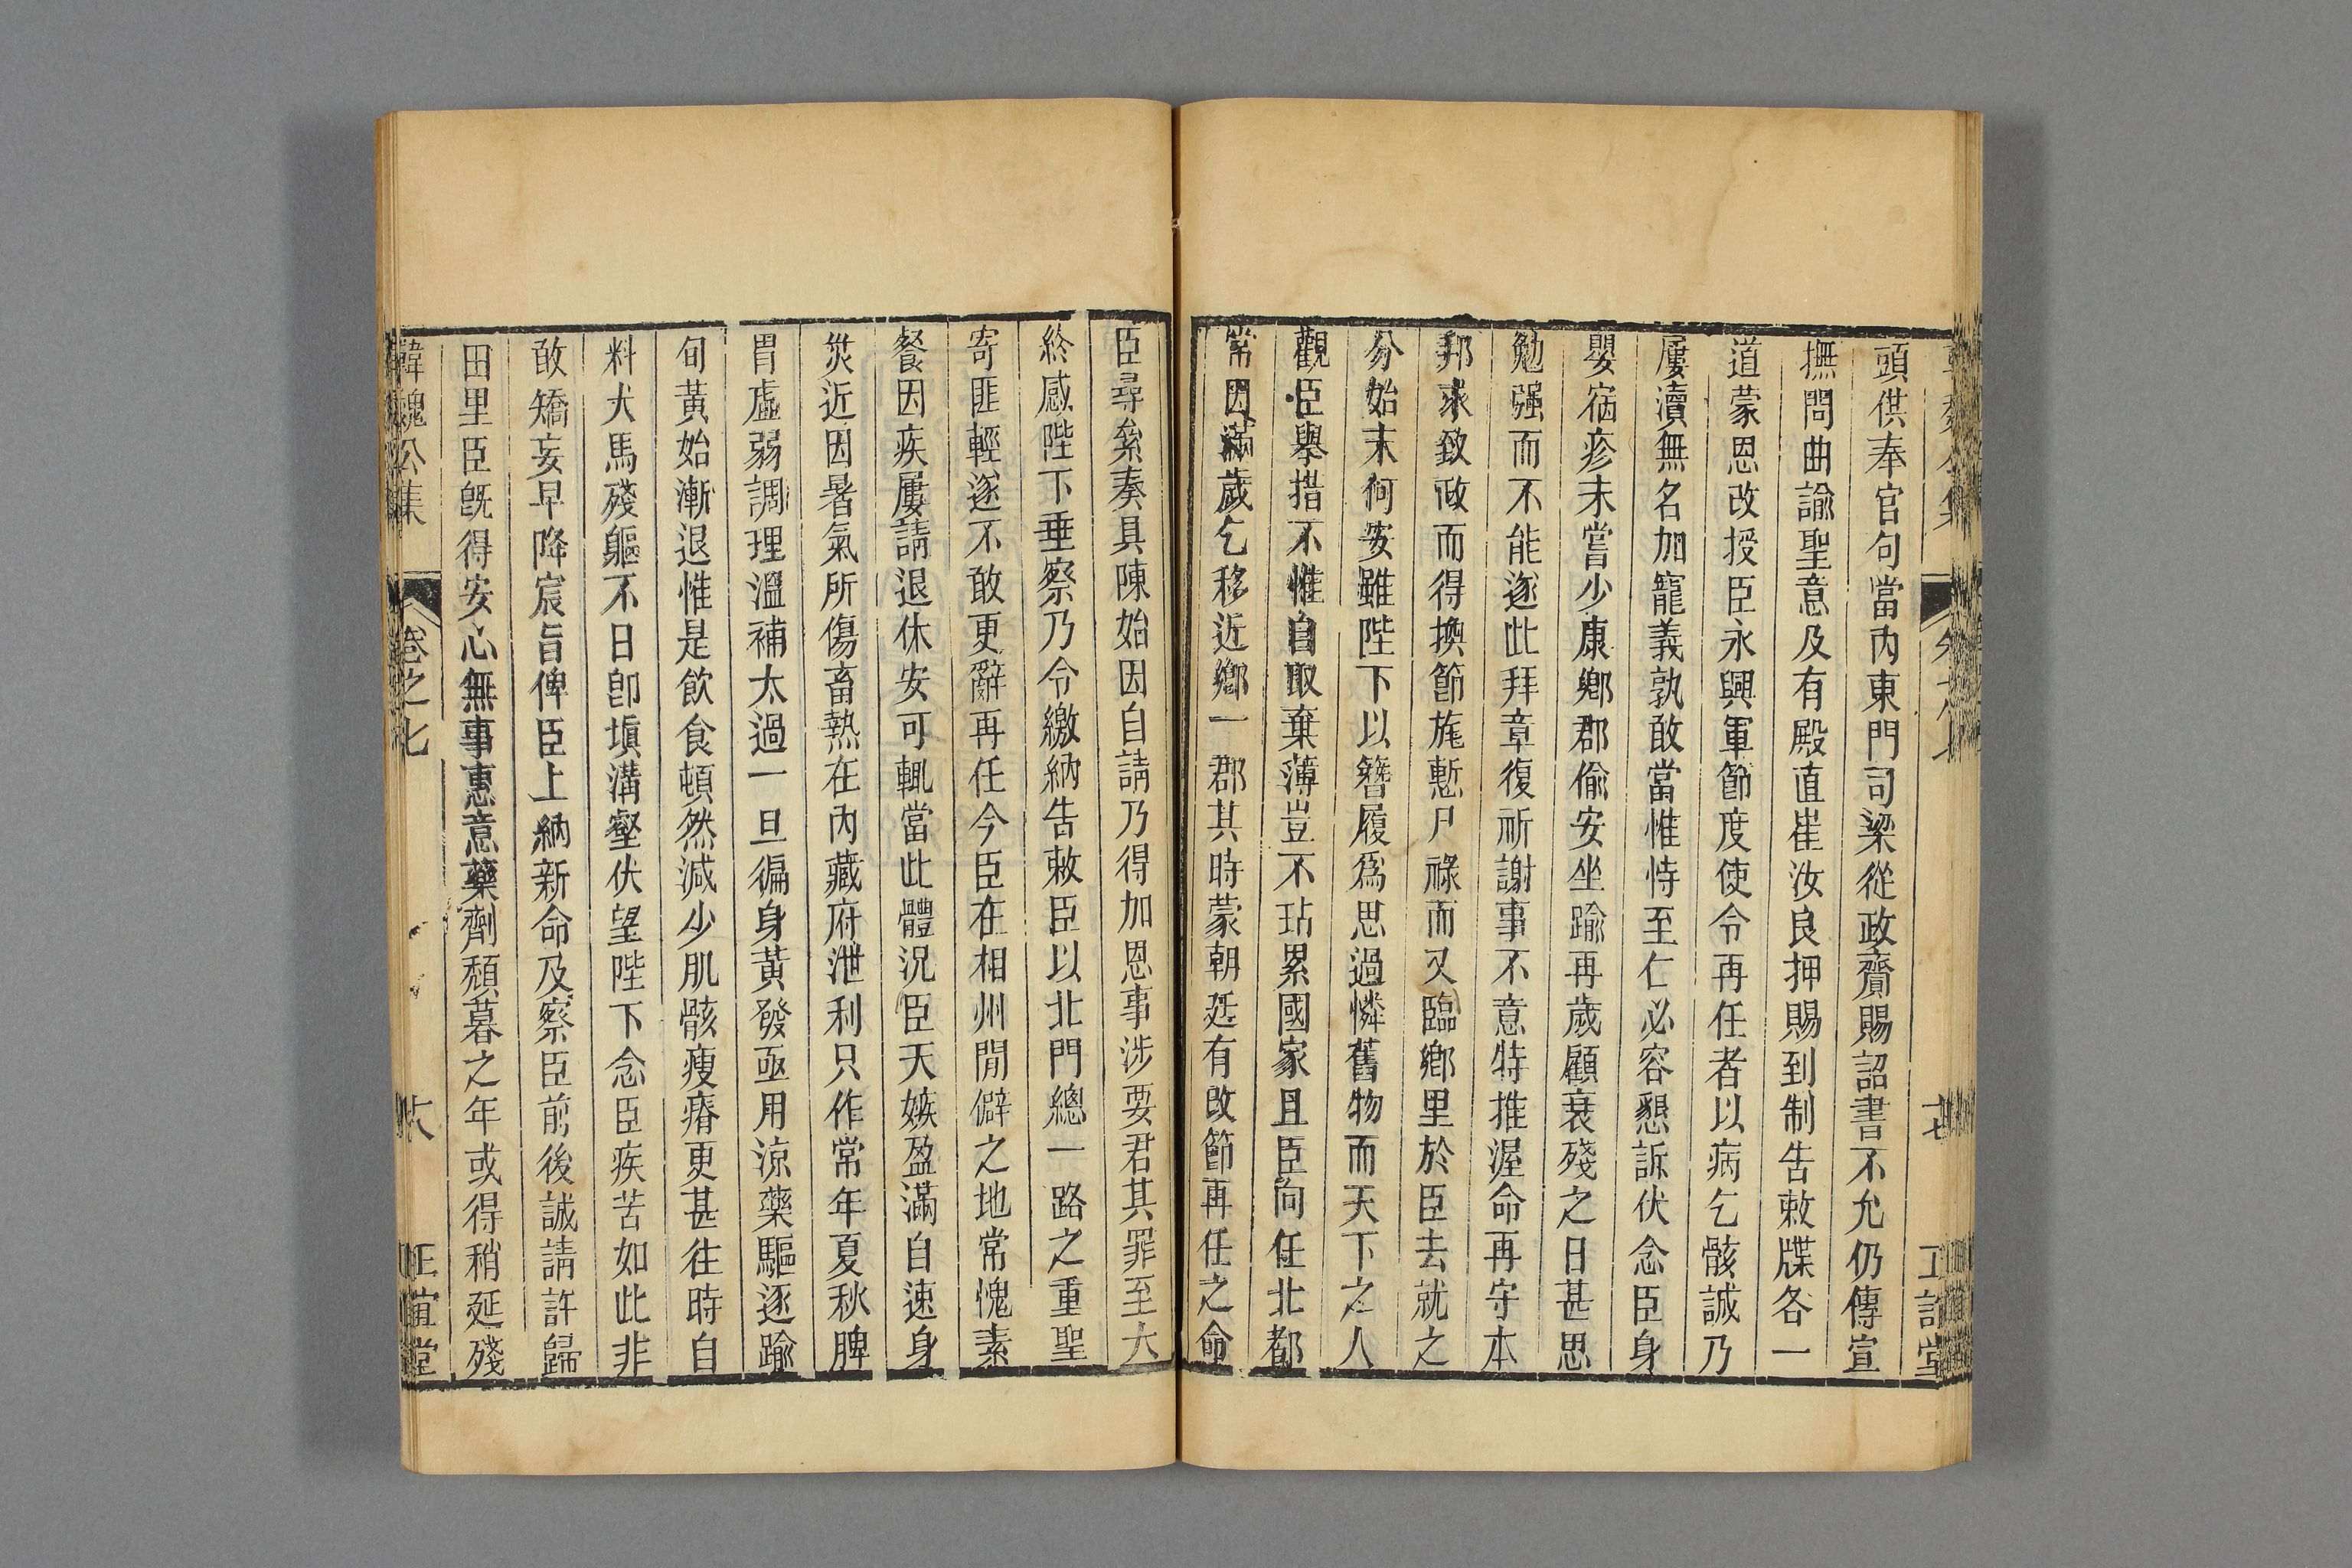 頭供奉官句當內東門司梁從政齎賜詔書不允仍傳宣
撫問曲諭聖意及有殿直崔汝良押賜到制告敕牒各一
道蒙恩改授臣永興軍節度使令再任者以病乞骸誠乃
屢瀆無名加寵義孰敢當惟恃至仁必容懇訴伏念臣身
嬰宿疹未嘗少康鄉郡偷安坐踰再歲顧衰殘之日甚思
勉强而不能遂此拜章復祈謝事不意特推渥命再守本
邦求致政而得換節旄慙尸祿而又臨鄉里於臣去就之
分始末何安雖陛下以簪履為思過憐舊物而天下之人
觀臣舉措不惟自取棄薄豈不玷累國家且臣向任北都
常因滿歲乞移近鄉一郡其時蒙朝廷有改節再任之命
臣尋絫奏具陳始因自請乃得加恩事涉要君其罪至大
終感陛下垂察乃令繳納告敕臣以北門總一路之重聖
寄匪輕遂不敢更辭再任今臣在相州閒僻之地常愧素
餐因疾屢請退休安可輒當此體況臣天嫉盈滿自速身
災近因暑氣所傷畜熱在內藏府泄利只作常年夏秋脾
胃虛弱調理溫補太過一旦徧身黃發亟用涼藥驅逐踰
旬黃始漸退惟是飲食頓然減少肌骸瘦瘠更甚往時自
料犬馬殘軀不日卽塡溝壑伏望陛下念臣疾苦如此非
敢矯妄早降宸旨俾臣上納新命及察臣前後誠請許歸
田里臣旣得安心無事惪意藥劑頹暮之年或得稍延殘
韓魏公集 卷之七 十八 正誼堂